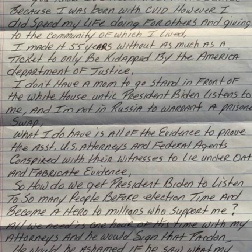 Because I was born with CVID However I
did Spend my life doing For others and giving
to the community of which I lived,
I made it 55 years without as much as a
Ticket to only Be Kidnapped By the America
department of Justice.
I dont Have a mom to go stand in Front of
the White House until President Biden Listens to
me, and I'm not in Russia to warrant a prisoner
Swap.
What I do have is all of the Evidence to prove
the Asst. U.S. Attorneys and Federal Agents
Conspired with their witnesses to Lie under Oath
And Fabricate Evidence,
So How do we get President Biden to Listen
To So many People Before election Time And
Become A Hero to millions who support me?
All we need is one hour of this time with my
Attorneys And he would Sign that Pardon
He would be Ashamed if he saw what my